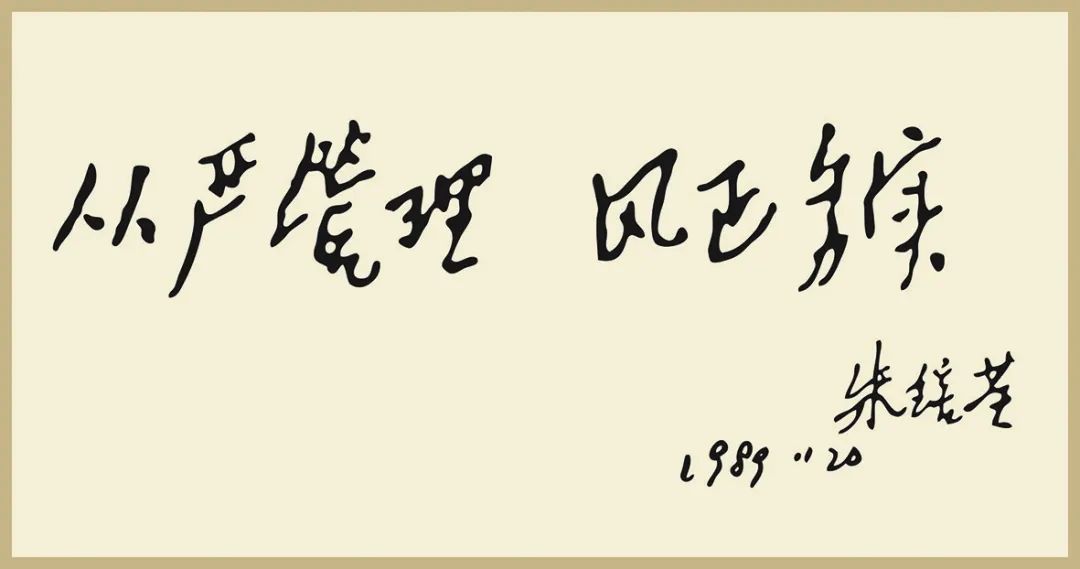 从严管理 风正务实
朱
1989 11 20